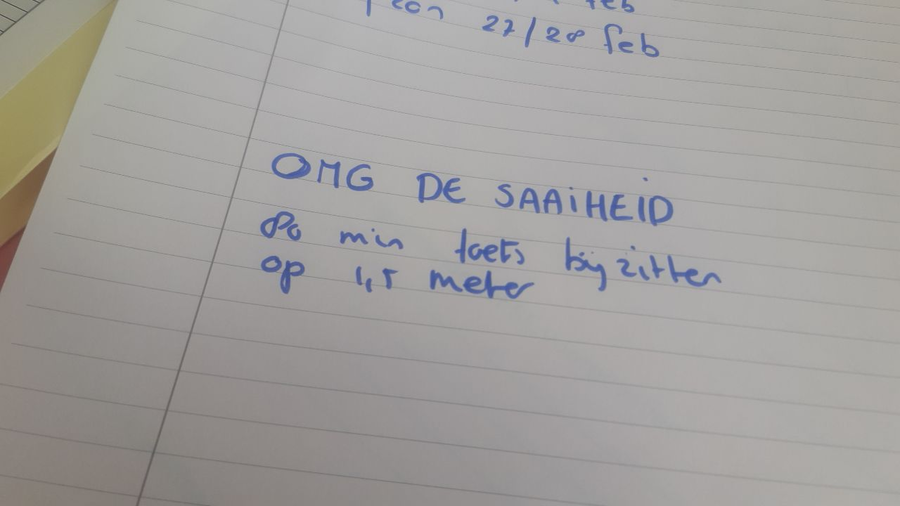 feb
27/28 feb
OMG DE SAAIHEID
80 min toets bijzitten
op 1,5 meter